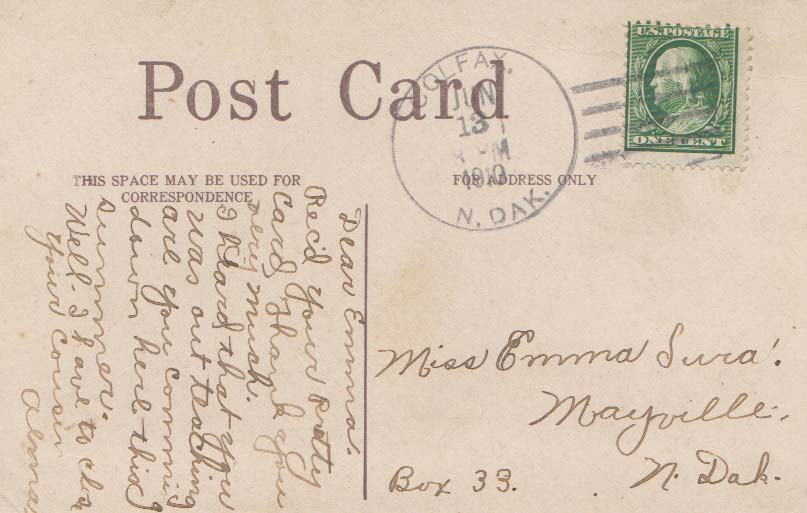 Post Card
THIS SPACE MAY BE USED FOR
CORRESPONDENCE
FOR ADDRESS ONLY
U.S. POSTAGE
ONE CENT
COLFAX,
JUN
13
M
1910
N. DAK.
Dear Emma.
Rec'd your pretty
Card Thank you
very much.
I Heard that you
was out teaching
are you comming
down here this
summer.
Well I have to close
your Cousin
Alma
Miss Emma Sura.
Mayville.
Box 33. N. Dak.